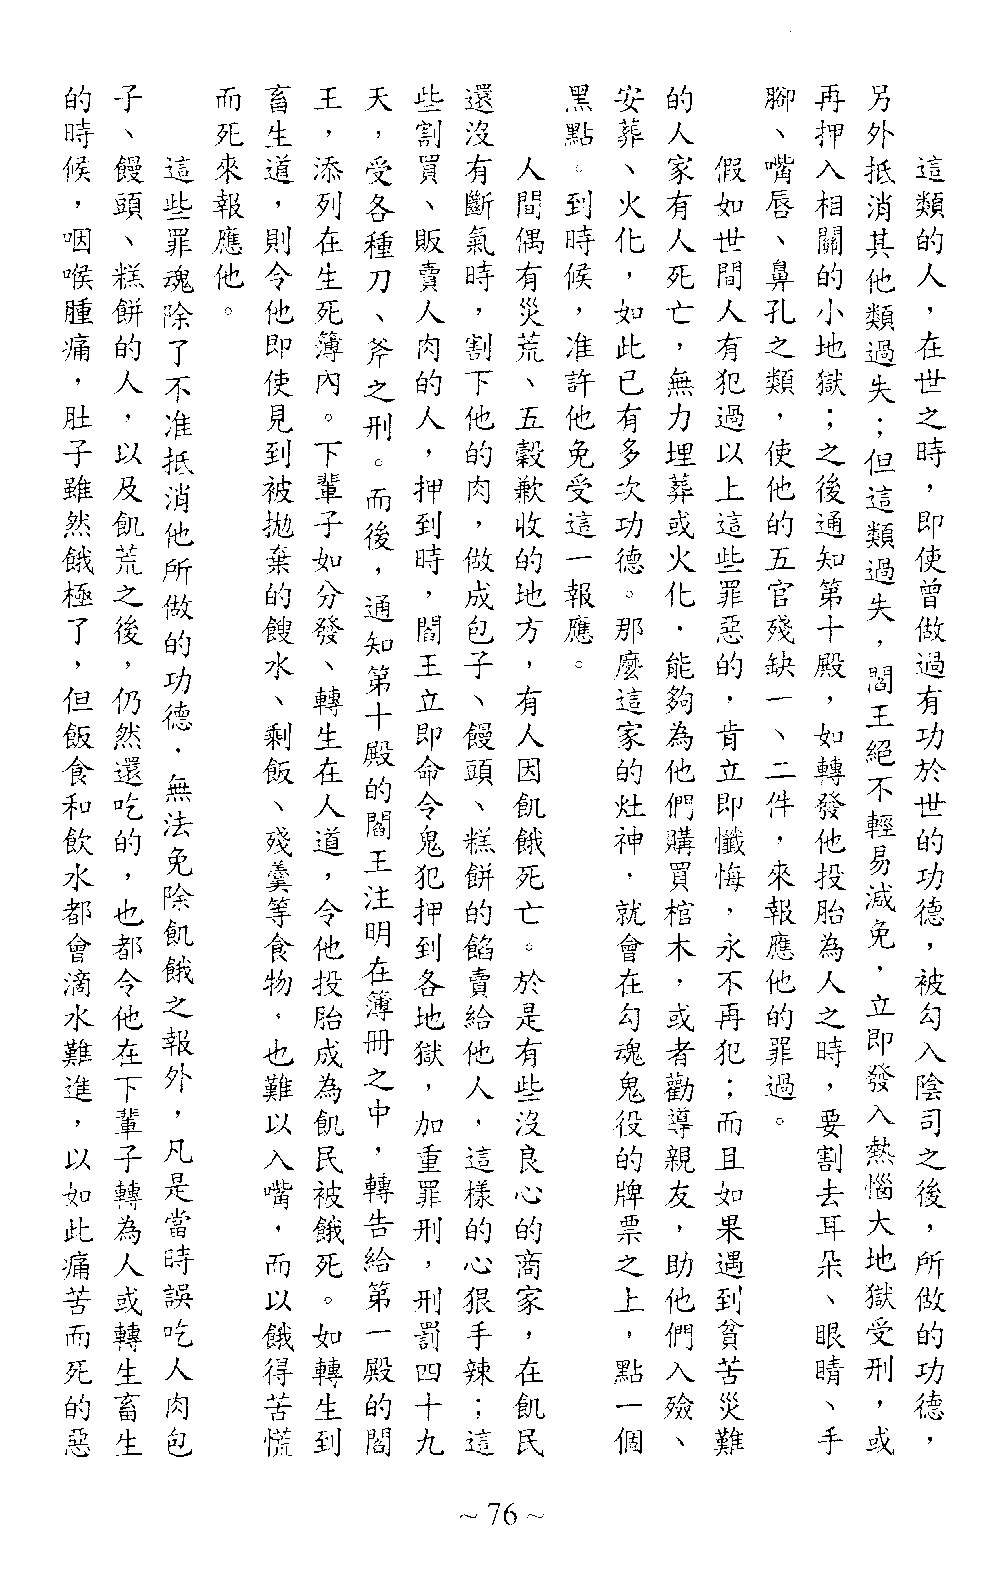 這類的人，在世之時，即使曾做過有功於世的功德，被勾入陰司之後，所做的功德，
另外抵消其他類過失；但這類過失，閻王絕不輕易減免，立即發入熱惱大地獄受刑，或
再押入相關的小地獄；之後通知第十殿，如轉發他投胎為人之時，要割去耳朵、眼睛、手
腳、嘴唇、鼻孔之類，使他的五官殘缺一、二件，來報應他的罪過。
假如世間人有犯過以上這些罪惡的，肯立即懺悔，永不再犯；而且如果遇到貧苦災難
的人家有人死亡，無力埋葬或火化．能夠為他們購買棺木，或者勸導親友，助他們入殮、
安葬、火化，如此已有多次功德。那麼這家的灶神．就會在勾魂鬼役的牌票之上，點一個
黑點。到時候，准許他免受這一報應。
人間偶有災荒、五穀歉收的地方，有人因飢餓死亡。於是有些沒良心的商家，在飢民
還沒有斷氣時，割下他的肉，做成包子、饅頭、糕餅的餡賣給他人，這樣的心狠手辣；這
些割買、販賣人肉的人，押到時，閻王立即命令鬼犯押到各地獄，加重罪刑，刑罰四十九
天，受各種刀、斧之刑。而後，通知第十殿的閻王注明在簿冊之中，轉告給第一殿的閻
王，添列在生死簿內。下輩子如分發、轉生在人道，令他投胎成為飢民被餓死。如轉生到
畜生道，則令他即使見到被拋棄的餿水、剩飯、殘羹等食物．也難以入嘴，而以餓得苦慌
而死來報應他。
這些罪魂除了不准抵消他所做的功德．無法免除飢餓之報外，凡是當時誤吃人肉包
子、饅頭、糕餅的人，以及飢荒之後，仍然還吃的，也都令他在下輩子轉為人或轉生畜生
的時候，咽喉腫痛，肚子雖然餓極了，但飯食和飲水都會滴水難進，以如此痛苦而死的惡
~ 76 ~